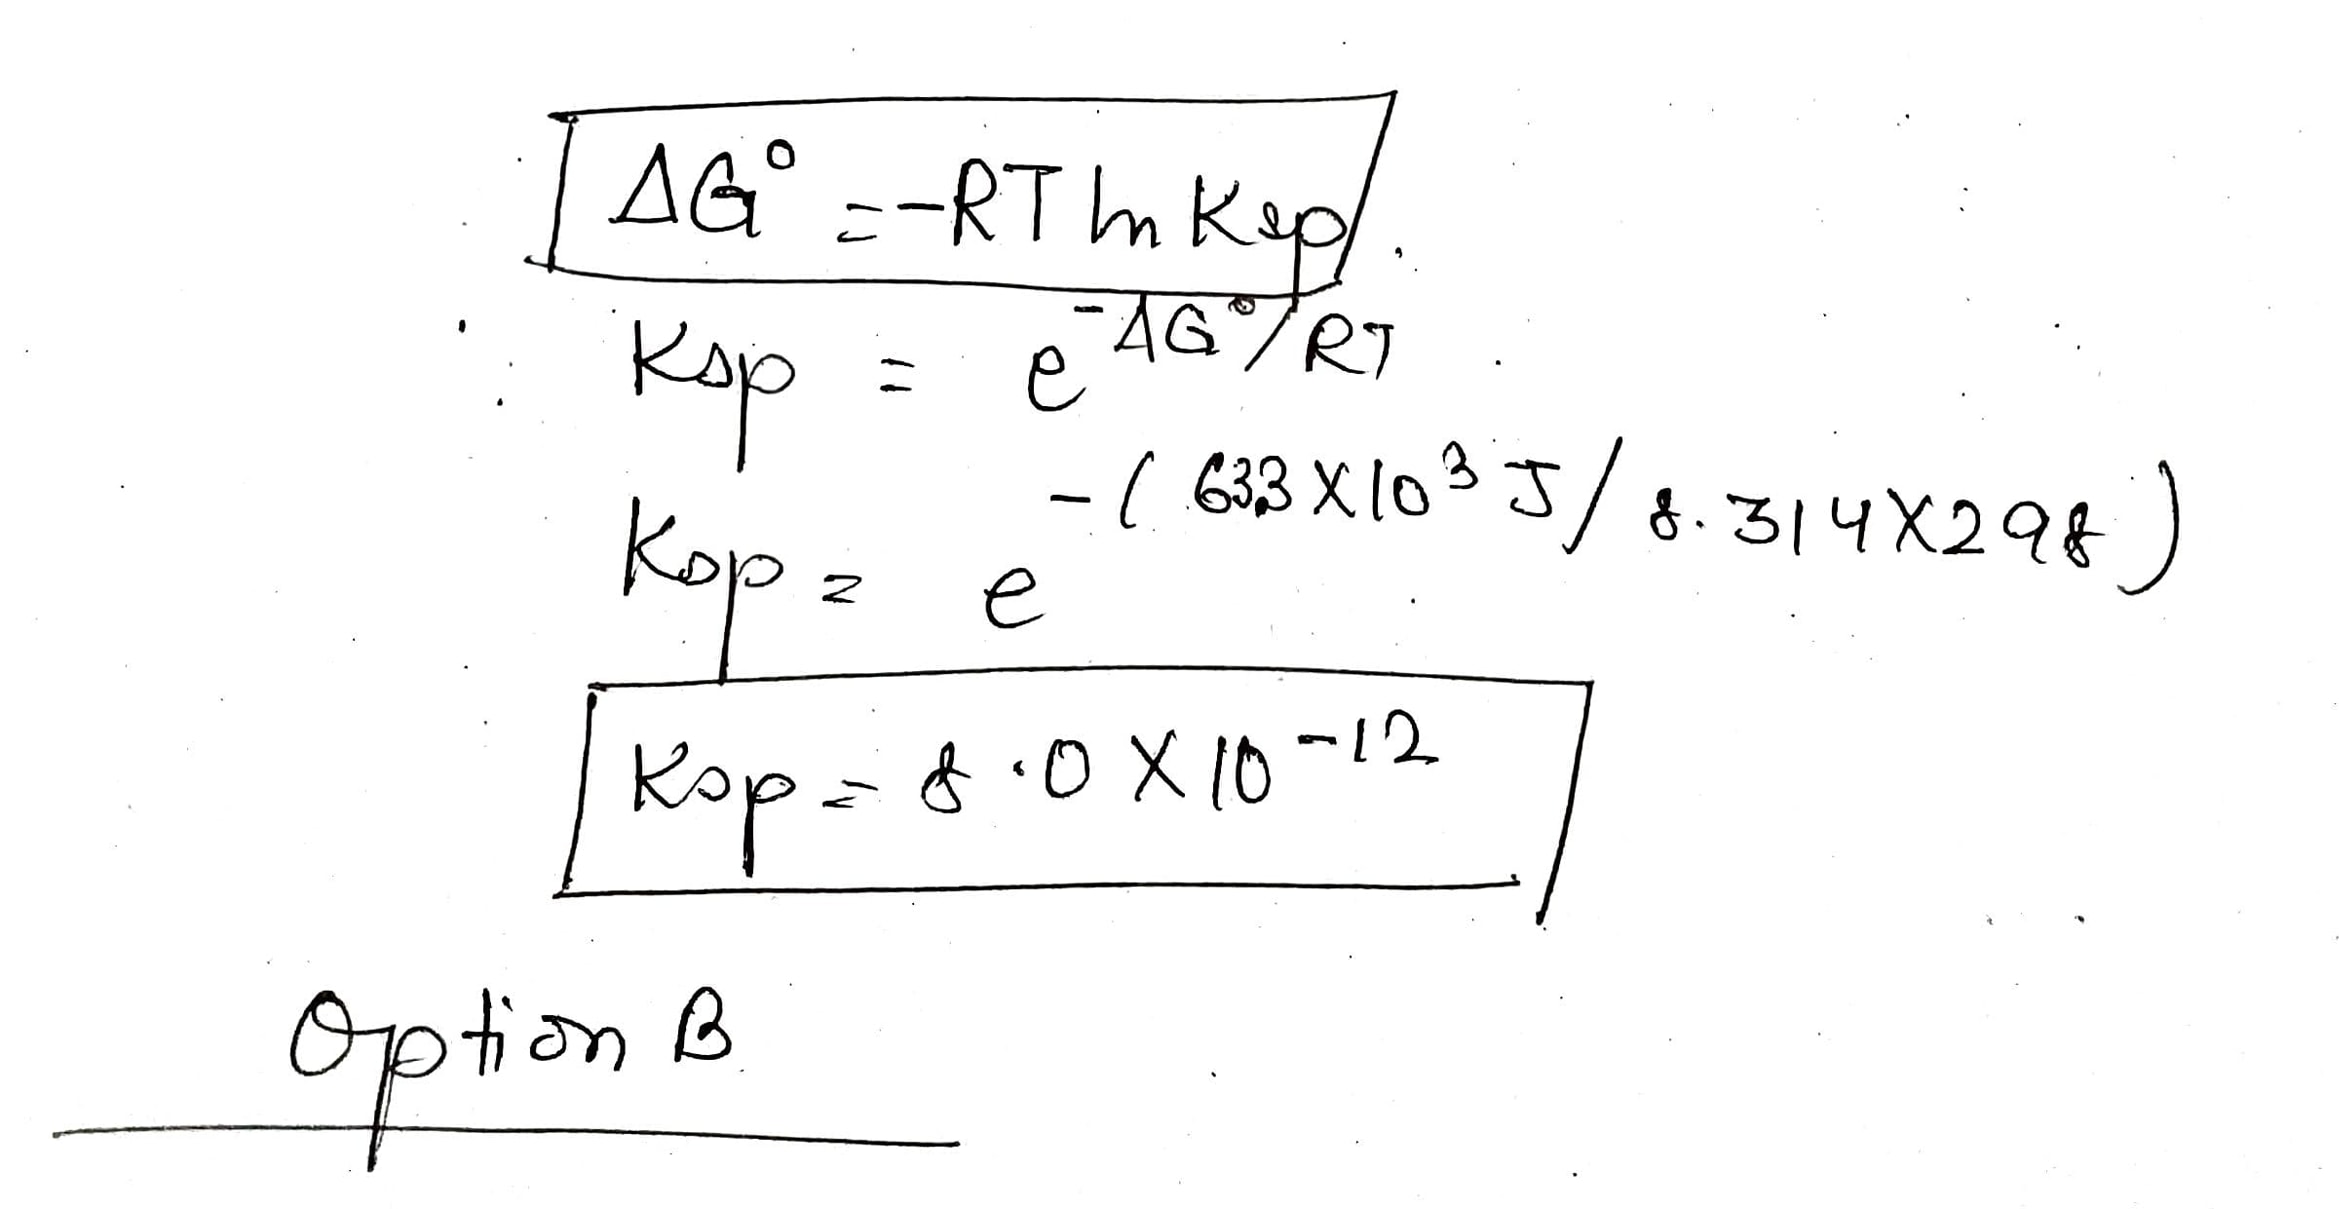 ΔG° = -RT ln Ksp
Ksp = e^-ΔG°/RT
Ksp = e^-(633×10^3 J/8.314×298)
Ksp = 8.0 × 10^-12
Option B